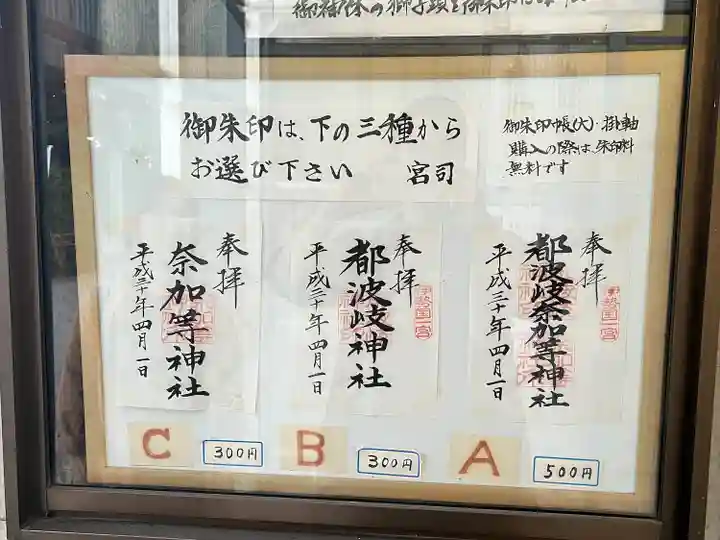 御朱印は、下の三種から
お選び下さい 宮司
御朱印帳(大)・掛軸
購入の際は、朱印料
無料です
奉拝
都波岐奈加等神社
平成三十年四月一日
伊勢国一宮
A
500円
奉拝
都波岐神社
平成三十年四月一日
伊勢国一宮
B
300円
奉拝
奈加等神社
平成三十年四月一日
C
300円